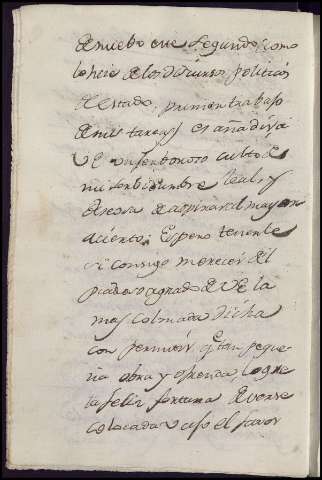 de nuebo en el segundo, como
lo hice de los discursos politicos
de estado, primer trabajo
de mis tareas es añadir a
V E un
mi serbidumbre leal y
deseosa de aspirar al mayor
acierto. Espero tenerle
si consigo merecer del
piadoso agrado de V E la
mas colmada dicha
con permitir, q tan peque
ña obra y ofrenda, logre
la feliz fortuna de verse
colocada vajo el favor